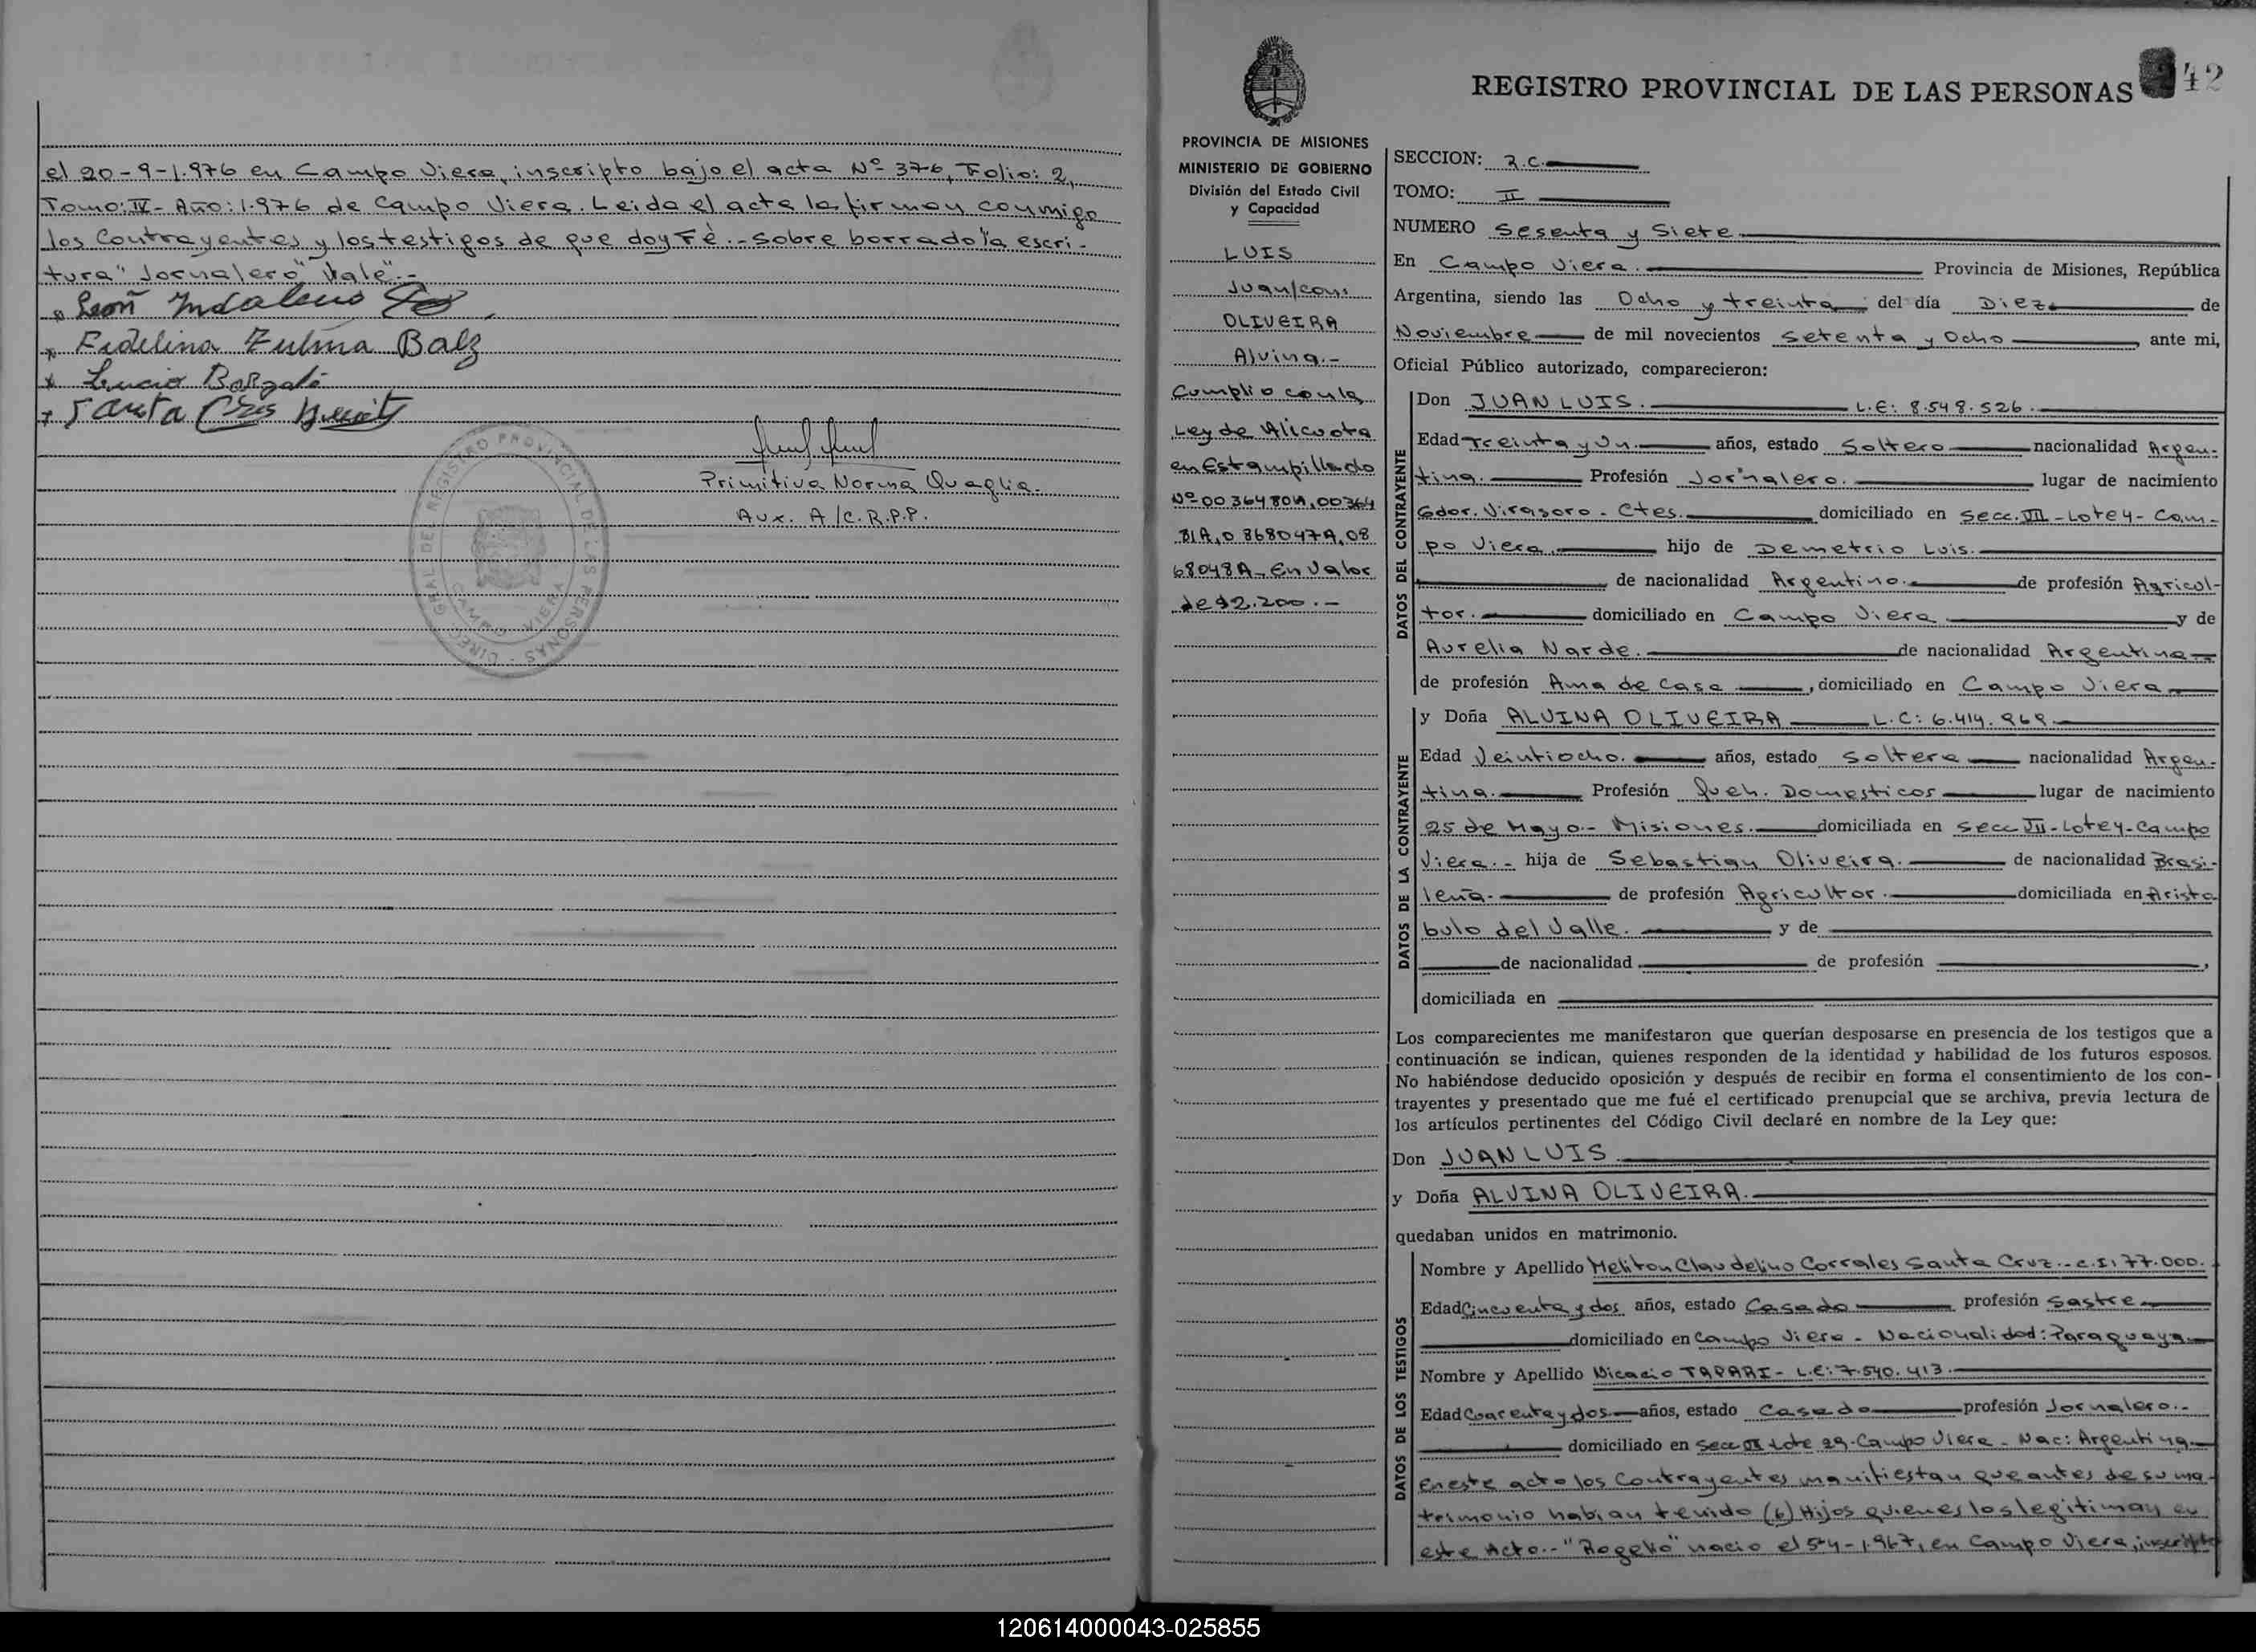 el 20-9-1.976 en Campo Viera, inscripto bajo el acta Nº 376, Folio: 2,
Tomo: IV - Año: 1.976 de Campo Viera. Leida el acta la firman conmigo
los Contrayentes y los testigos de que doy Fè.- sobre borrado la escri-
tura "Jornalero" Vale".-
Indalecio
Fidelina Zulma Balz
Lucio
Santa Cruz
Primitiva Norma Quaglia.
Aux. A/C. R.P.P.
DIREC. GRAL DEL REGISTRO PROVINCIAL DE LAS PERSONAS - CAMPO VIERA
42
REGISTRO PROVINCIAL DE LAS PERSONAS
PROVINCIA DE MISIONES
MINISTERIO DE GOBIERNO
División del Estado Civil
y Capacidad
LUIS
Juan/con:
OLIVEIRA
Alvina.-
Cumplio con la
Ley de Alicuota
en Estampillado
Nº 00364804, 00364
81A, 0868047A, 08
68048A - En Valor
de $2.200.-
SECCION: 2.C.
TOMO: II
NUMERO Sesenta y Siete
En Campo Viera. Provincia de Misiones, República
Argentina, siendo las Ocho y treinta del día Diez de
Noviembre de mil novecientos Setenta y Ocho, ante mi,
Oficial Público autorizado, comparecieron:
DATOS DEL CONTRAYENTE
Don JUAN LUIS. L.E: 8.548.526.
Edad Treinta y Un. años, estado Soltero nacionalidad Argen-
tina. Profesión Jornalero. lugar de nacimiento
Gdor. Virasoro - Ctes. domiciliado en Secc. VII - Lote 4 - Cam-
po Viera. hijo de Demetrio Luis.
de nacionalidad Argentino. de profesión Agricul-
tor. domiciliado en Campo Viera y de
Aurelia Narde. de nacionalidad Argentina
de profesión Ama de Casa, domiciliado en Campo Viera
DATOS DE LA CONTRAYENTE
y Doña ALVINA OLIVEIRA L.C: 6.414.969
Edad Veintiocho. años, estado Soltera nacionalidad Argen-
tina. Profesión Queh. Domesticos lugar de nacimiento
25 de Mayo.- Misiones. domiciliada en Secc VII - Lote 4 - Campo
Viera.- hija de Sebastian Oliveira. de nacionalidad Brasi-
leña. de profesión Agricultor. domiciliada en Aristo
bulo del Valle. y de
de nacionalidad de profesión ,
domiciliada en
Los comparecientes me manifestaron que querían desposarse en presencia de los testigos que a
continuación se indican, quienes responden de la identidad y habilidad de los futuros esposos.
No habiéndose deducido oposición y después de recibir en forma el consentimiento de los con-
trayentes y presentado que me fué el certificado prenupcial que se archiva, previa lectura de
los artículos pertinentes del Código Civil declaré en nombre de la Ley que:
Don JUAN LUIS
y Doña ALVINA OLIVEIRA.
quedaban unidos en matrimonio.
DATOS DE LOS TESTIGOS
Nombre y Apellido Meliton Claudelino Corrales Santa Cruz.- C.I; 77.000.
Edad Cincuenta y dos años, estado Casado profesión Sastre
domiciliado en Campo Viera - Nacionalidad: Paraguaya
Nombre y Apellido Nicacio TAPARI - L.E: 7.540.413.
Edad Cuarenta y dos años, estado Casado profesión Jornalero.-
domiciliado en Secc Lote 29 - Campo Viera - Nac: Argentina
En este acto los Contrayentes manifiestan que antes de su ma-
trimonio habian tenido (6) Hijos quienes los legitiman en
este Acto.- "Rogelio" nacio el 5-4-1.967, en Campo Viera, inscripto
120614000043-025855